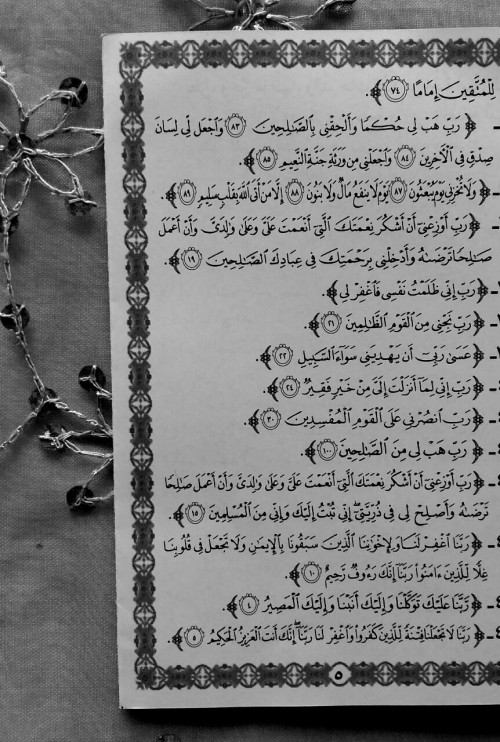 لِلْمُتَّقِينَ إِمَامًا ﴿٧٤﴾.
ـ ﴿رَبِّ هَبْ لِي حُكْمًا وَأَلْحِقْنِي بِالصَّالِحِينَ ﴿٨٣﴾ وَاجْعَل لِّي لِسَانَ
صِدْقٍ فِي الْآخِرِينَ ﴿٨٤﴾ وَاجْعَلْنِي مِن وَرَثَةِ جَنَّةِ النَّعِيمِ ﴿٨٥﴾﴾.
ـ ﴿وَلَا تُخْزِنِي يَوْمَ يُبْعَثُونَ ﴿٨٧﴾ يَوْمَ لَا يَنفَعُ مَالٌ وَلَا بَنُونَ ﴿٨٨﴾ إِلَّا مَنْ أَتَى اللَّهَ بِقَلْبٍ سَلِيمٍ ﴿٨٩﴾﴾.
ـ ﴿رَبِّ أَوْزِعْنِي أَنْ أَشْكُرَ نِعْمَتَكَ الَّتِي أَنْعَمْتَ عَلَيَّ وَعَلَى وَالِدَيَّ وَأَنْ أَعْمَلَ
صَالِحًا تَرْضَاهُ وَأَدْخِلْنِي بِرَحْمَتِكَ فِي عِبَادِكَ الصَّالِحِينَ ﴿١٩﴾﴾.
ـ ﴿رَبِّ إِنِّي ظَلَمْتُ نَفْسِي فَاغْفِرْ لِي﴾.
ـ ﴿رَبِّ نَجِّنِي مِنَ الْقَوْمِ الظَّالِمِينَ ﴿٢١﴾﴾.
ـ ﴿عَسَى رَبِّي أَن يَهْدِيَنِي سَوَاءَ السَّبِيلِ ﴿٢٢﴾﴾.
ـ ﴿رَبِّ إِنِّي لِمَا أَنزَلْتَ إِلَيَّ مِنْ خَيْرٍ فَقِيرٌ ﴿٢٤﴾﴾.
ـ ﴿رَبِّ انصُرْنِي عَلَى الْقَوْمِ الْمُفْسِدِينَ ﴿٣٠﴾﴾.
ـ ﴿رَبِّ هَبْ لِي مِنَ الصَّالِحِينَ ﴿١٠٠﴾﴾.
ـ ﴿رَبِّ أَوْزِعْنِي أَنْ أَشْكُرَ نِعْمَتَكَ الَّتِي أَنْعَمْتَ عَلَيَّ وَعَلَى وَالِدَيَّ وَأَنْ أَعْمَلَ صَالِحًا
تَرْضَاهُ وَأَصْلِحْ لِي فِي ذُرِّيَّتِي إِنِّي تُبْتُ إِلَيْكَ وَإِنِّي مِنَ الْمُسْلِمِينَ ﴿١٥﴾﴾.
ـ ﴿رَبَّنَا اغْفِرْ لَنَا وَلِإِخْوَانِنَا الَّذِينَ سَبَقُونَا بِالْإِيمَانِ وَلَا تَجْعَلْ فِي قُلُوبِنَا
غِلًّا لِّلَّذِينَ ءَامَنُوا رَبَّنَا إِنَّكَ رَءُوفٌ رَّحِيمٌ ﴿١٠﴾﴾.
ـ ﴿رَّبَّنَا عَلَيْكَ تَوَكَّلْنَا وَإِلَيْكَ أَنَبْنَا وَإِلَيْكَ الْمَصِيرُ ﴿٤﴾﴾.
ـ ﴿رَبَّنَا لَا تَجْعَلْنَا فِتْنَةً لِّلَّذِينَ كَفَرُوا وَاغْفِرْ لَنَا رَبَّنَا إِنَّكَ أَنتَ الْعَزِيزُ الْحَكِيمُ ﴿٥﴾﴾.
٥